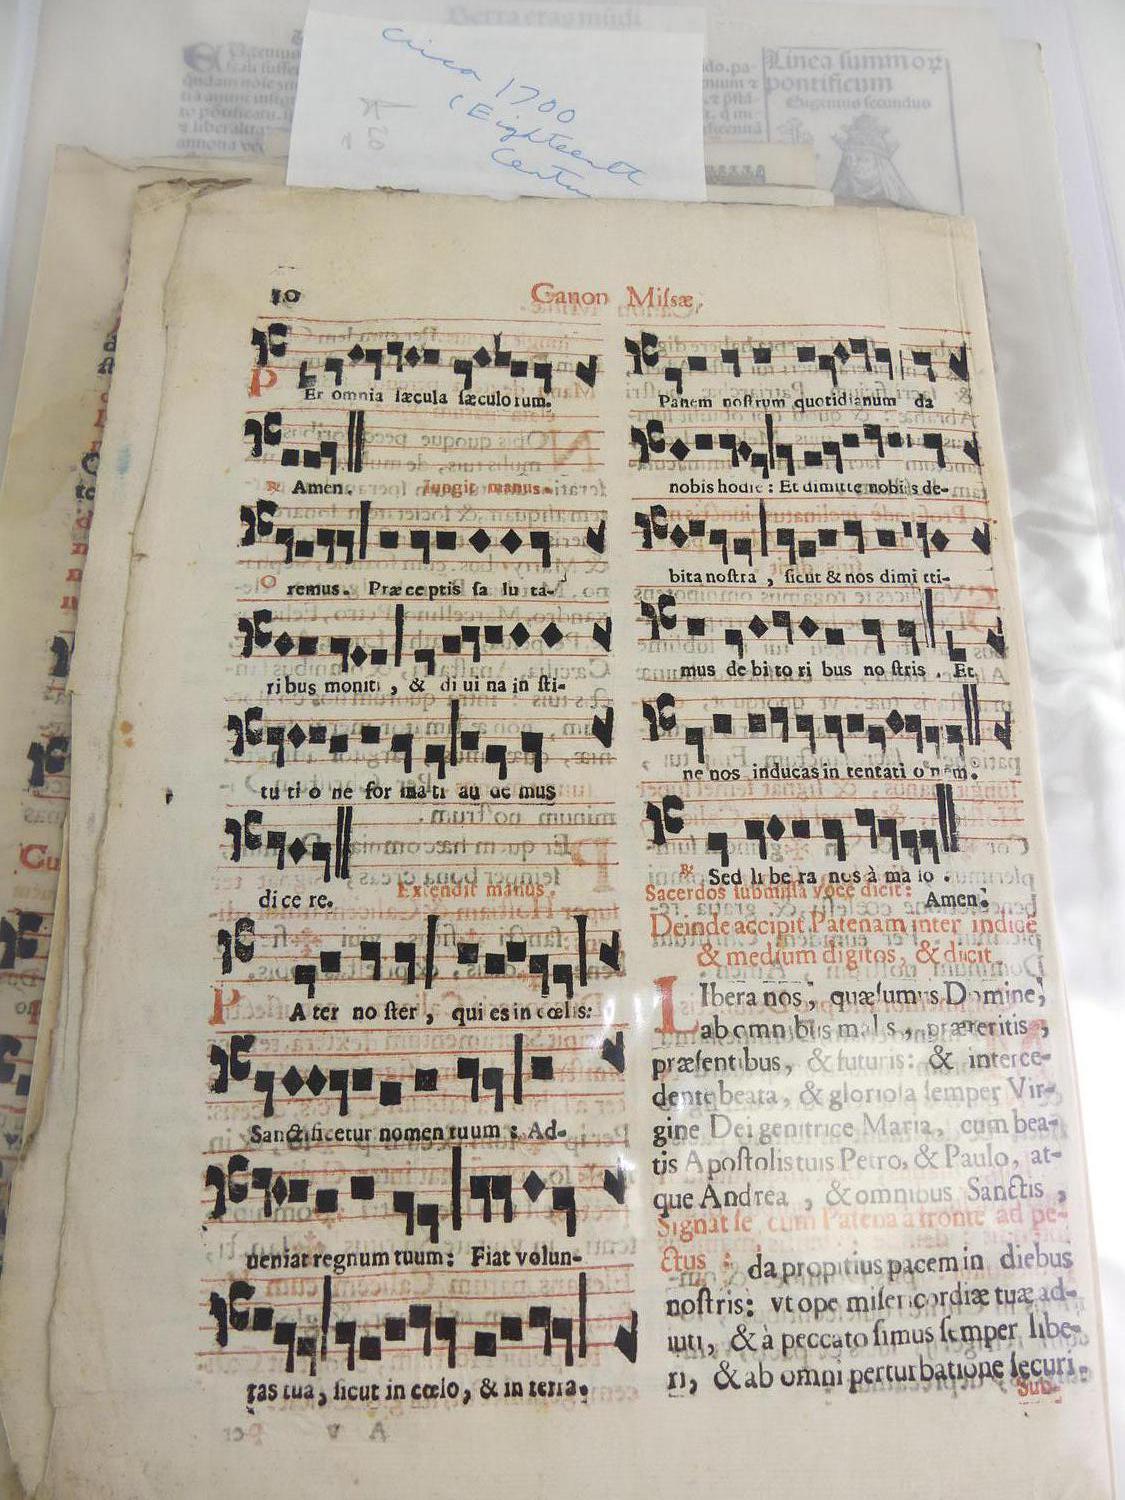 circa 1700
(Eighteenth
Linea summorū
pontificum
Eugenius secundus
10
Canon Missæ.
PEr omnia sæcula sæculorum.
℟ Amen. Iungit manus.
Oremus. Præceptis sa lu ta-
ribus moniti, & di ui na in sti-
tu ti o ne for ma ti au de mus
di ce re. Extendit manus.
PA ter no ster, qui es in cœlis:
Sanctificetur nomen tuum: Ad-
ueniat regnum tuum: Fiat volun-
tas tua, sicut in cœlo, & in terra.
Panem nostrum quotidianum da
nobis hodie: Et dimitte nobis de-
bita nostra, sicut & nos dimi tti-
mus de bi to ri bus no stris. Et
ne nos inducas in tentati o nem.
℟ Sed li be ra nos à ma lo.
Sacerdos submissa voce dicit: Amen.
Deinde accipit Patenam inter indice
& medium digitos, & dicit.
LIbera nos, quæsumus Domine,
ab omnibus malis, præteritis,
præsentibus, & futuris: & interce-
dente beata, & gloriosa semper Vir-
gine Dei genitrice Maria, cum bea-
tis Apostolis tuis Petro, & Paulo, at-
que Andrea, & omnibus Sanctis,
Signat se cum Patena à fronte ad pe-
ctus: da propitius pacem in diebus
nostris: vt ope misericordiæ tuæ ad-
iuti, & à peccato simus semper libe-
ri, & ab omni perturbatione securi.
Sub-